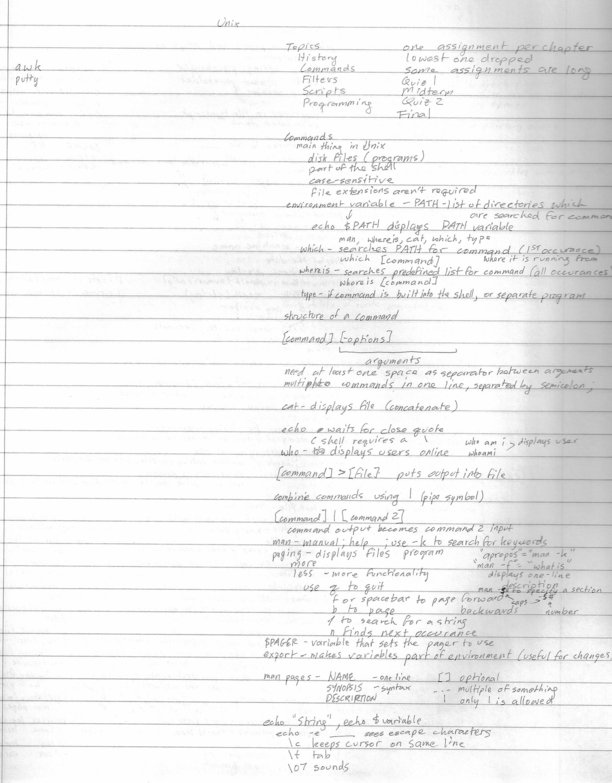 Unix
Topics one assignment per chapter
History lowest one dropped
awk Commands some assignments are long
putty Filters Quiz 1
Scripts Midterm
Programming Quiz 2
Final
Commands
main thing in Unix
disk files (programs)
part of the shell
case-sensitive
file extensions aren't required
environment variable - PATH - list of directories which
↓ are searched for comman
echo $PATH displays PATH variable
man, whereis, cat, which, type
which - searches PATH for command (1st occurance)
which [command] where it is running from
whereis - searches predefined list for command (all occurances
whereis [command]
type - if command is built into the shell, or separate program
structure of a command
[command] [-options]
arguments
need at least one space as separator between arguments
multiple commands in one line, separated by semicolon ;
cat - displays file (concatenate)
echo waits for close quote
C shell requires a \ who am i > displays user
who - displays users online whoami
[command] > [file] puts output into file
combine commands using | (pipe symbol)
[command] | [command 2]
command output becomes command 2 input
man - manual; help ; use -k to search for keywords
paging - displays files program "apropos" = "man -k"
more "man -f" = "whatis"
less - more functionality displays one-line
use q to quit description
man to specify a section
f or spacebar to page forward caps
b to page backwards number
/ to search for a string
n finds next occurance
$PAGER - variable that sets the pager to use
export - makes variables part of environment (useful for changes
man pages - NAME - one line [ ] optional
SYNOPSIS - syntax ... multiple of something
DESCRIPTION | only 1 is allowed
echo "String", echo $variable
echo -e ___ escape characters
\c keeps cursor on same line
\t tab
\07 sounds